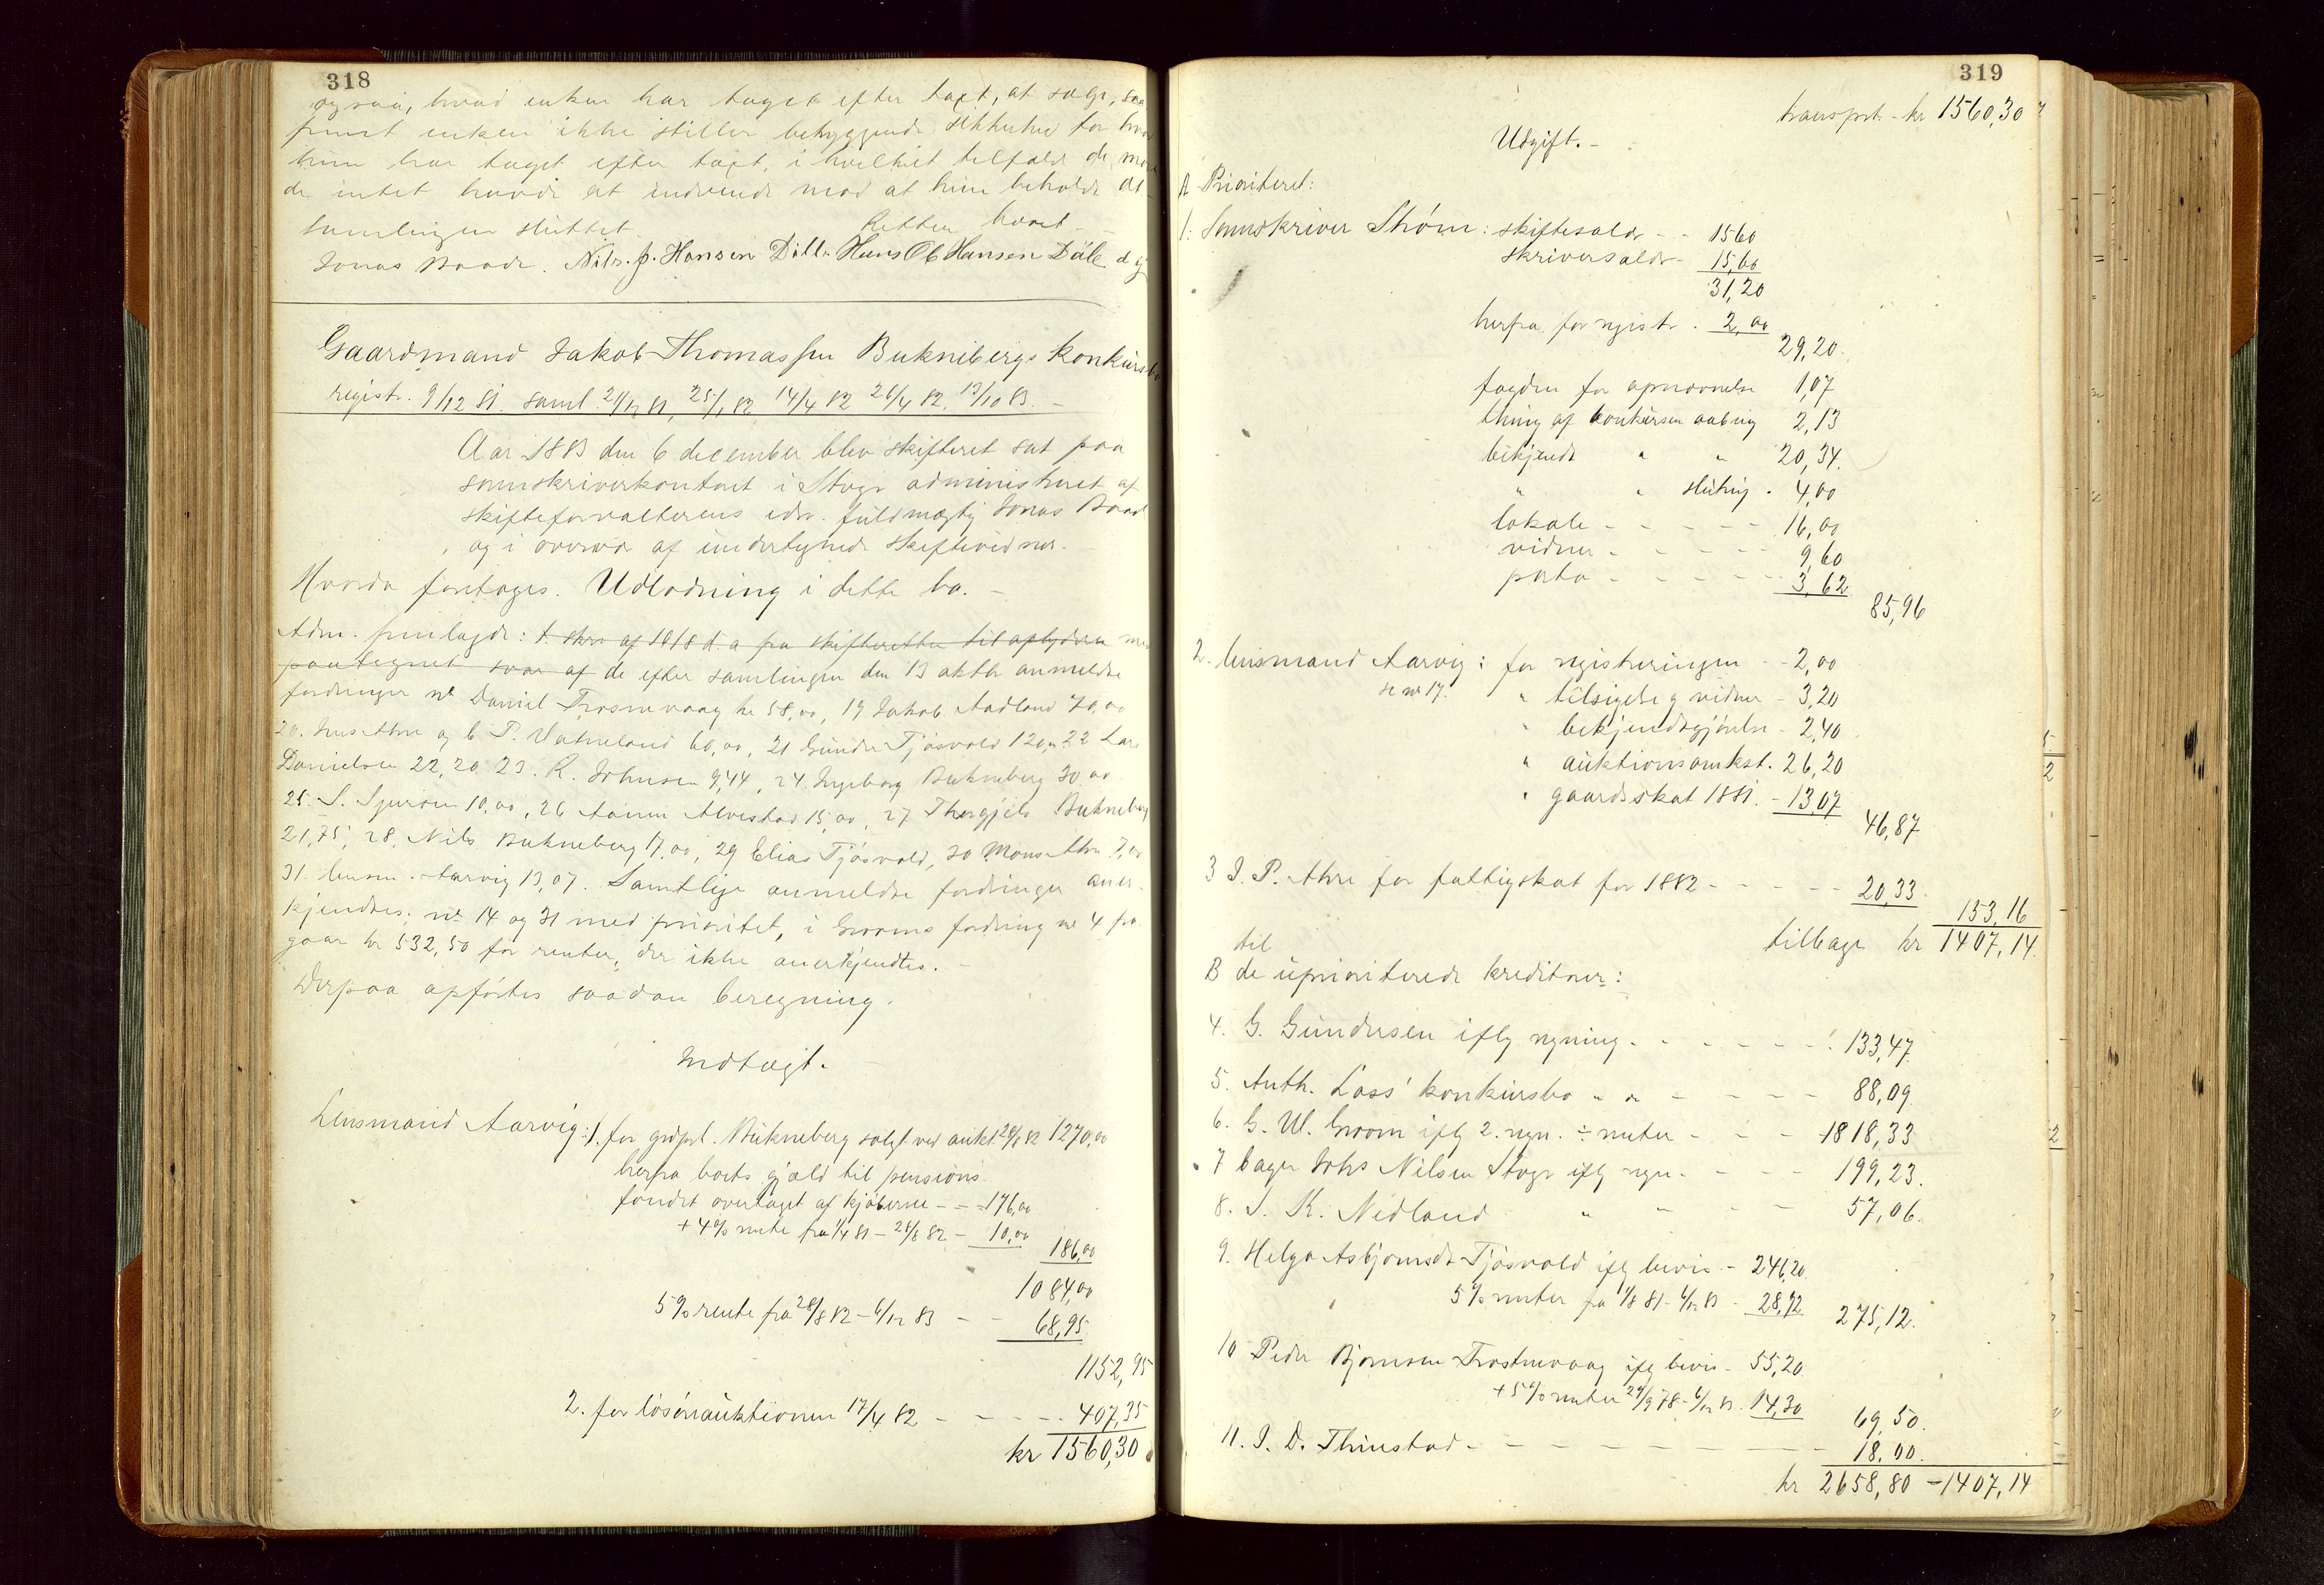 318
ogsaa, hvad enken har taget efter taxt, at sælge, saa
fremt enken ikke stiller betryggende sikkerhed for hvad
hun har taget efter taxt, i hvilket tilfælde de
de intet havde at indvende mod at hun beholdt det
samlingen sluttet. Retten hævet.
Jonas Raade. Nils. J. Hansen Dalle Hans Ob Hansen Dåle
Gaardmand Jakob Thomassen Buknebergs konkursbo
registr. 9/12 81. saml. 21/12 81, 25/1 82 14/4 82 26/4 82. 13/10 83. –
Aar 1883 den 6 december blev skifteret sat paa
sorenskriverkontoret i Stvgr administreret af
skifteforvalterens edsv. fuldmægtig Jonas
og i overvær af undertegnede skiftevidner.
Hvorda foretages. Udlodning i dette bo. –
Adm. fremlagde: 1. skr. af 18/8 d. a fra skifteretten til
paategnet svar af de efter samlingen den 13 oktbr anmeldte
fordringer no Daniel Trosnevaag kr 58,00, 19 Jakob Aadland 70,00
20. Jens Athre og C P. Vatneland 60,00, 21 Gunder Tjøsvold 120,00 22 Lars
Danielsen 22,20 23. R. Johnsen 9,44, 24 Ingeborg Bukneberg 30,00
25. S. Sjursen 10,00, 26 Aanen Alvestad 15,00, 27 Thorgjels Bukneberg
21,75, 28, Nils Bukneberg 17,00, 29 Elias Tjøsvold, 30 Mons Athre
31. lensm. Aarvig 13,07. Samtlige anmeldte fordringer aner-
kjendtes; no 14 og 31 med prioritet, i Grooms fordring no 4 fra
gaar kr 532,50 for renter, der ikke anerkjendtes. –
Derpaa opførtes saadan beregning.
Indtægt. –
Lensmand Aarvig: 1. for grdprt. Bukneberg solgt ved aukt. 28/8 82 1270,00
herfra boets gjæld til pensions-
fondet overtaget af kjøberne – – 176,00
+ 4% rente fra 1/4 81 – 28/8 82 – 10,00
186,00
1084,00
5% rente fra 28/8 82 – 6/12 83 – – 68,95
1152,95
2. for løsøreauktionen 17/4 82 – – – – 407,35
kr 1560,30
319
transprt. – kr 1560,30
Udgift. –
A Prioriteret:
1. Sorenskriver Strøm: skiftesalær – – 15,60
skriversalær – 15,60
31,20
herfra for registr. 2,00
29,20
fogden for opnævnelse 1,07
thing af konkursen aabng 2,13
bekjendt " " 20,34
" " slutng. 4,00
lokale – – – – – 16,00
vidner – – – – – 9,60
porto – – – – – 3,62
85,96
2. lensmand Aarvig: for registreringen – 2,00
se no 17. " tilsigelse g vidner – 3,20
" bekjendtgjørelse – 2,40
" auktionsomkst. 26,20
" gaardsskat 1881. – 13,07
46,87
3 J. P. Athre for fattigskat for 1882 – – – – – 20,33
153,16
til tilbage kr 1407,14
B de uprioriterede kreditorer:
4. G. Gundersen iflg regning – – – – – – 133,47
5. Anth. Loss' konkursbo " " – – – – – 88,09
6. G. W. Groom iflg 2. regn. ÷ renter – – – 1818,33
7 bager Johs Nilsen Stvgr iflg regn. – – – 199,23.
8. S. K. Nedland " " – – 57,06.
9. Helga Asbjørnsdr Tjøsvold iflg bevis – 246,20
5% renter fra 1/8 81 – 6/12 83 – 28,92 275,12.
10 Peder Bjørnsen Trosnevaag iflg bevis – 55,20
+ 5% renter 29/9 78 – 6/12 83. 14,30
69,50.
11. J. D. Thuestad – – – – – – – – – 18,00.
kr 2658,80 – 1407,14